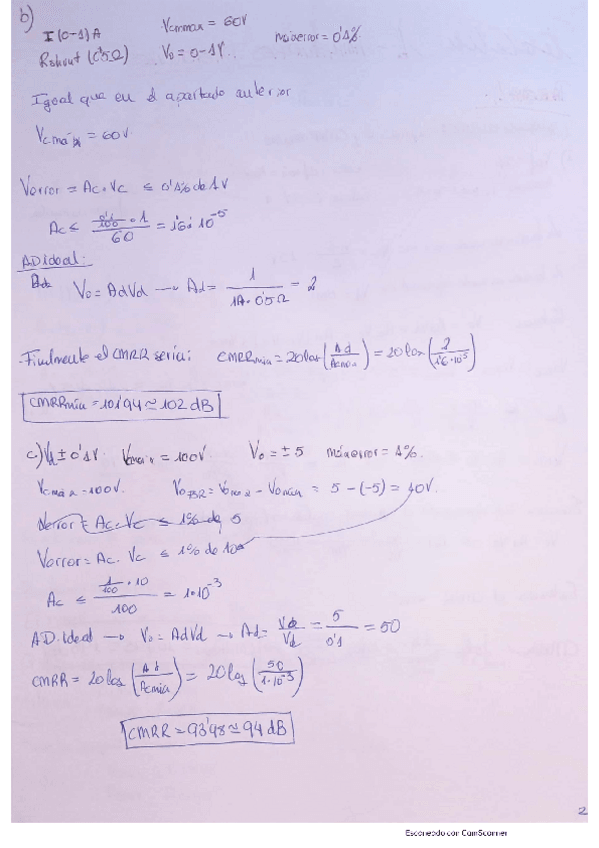 b) I (0-1) A Vcmmax = 60V máx error = 0'1%
Rshunt (0'5Ω) Vo = 0-1V.
Igual que en el apartado anterior
Vcmáx = 60V.
Verror = Ac·Vc ≤ 0'1% de 1V
Ac ≤ (0'1/100 · 1)/60 = 1'6i 10^-5
AD ideal:
Vo = AdVd → Ad = 1/(1A·0'5Ω) = 2
Finalmente el CMRR sería: CMRRmin = 20log(Ad/Acmín) = 20log(2/1'6·10^-5)
CMRRmin = 101'94 ≃ 102 dB
c) Vd ± 0'1V Vcmáx = 100V. Vo = ± 5 máx error = 1%.
Vcmáx = 100V. VoFSR = Vomáx - Vomín = 5 - (-5) = 10V.
Verror = Ac·Vc ≤ 1% de 5
Verror = Ac. Vc ≤ 1% de 10
Ac ≤ (1/100 · 10)/100 = 1·10^-3
AD. Ideal → Vo = AdVd → Ad = Vo/Vd = 5/0'1 = 50
CMRR = 20log(Ad/Acmín) = 20log(50/1·10^-3)
CMRR = 93'98 ≃ 94 dB
2
Escaneado con CamScanner